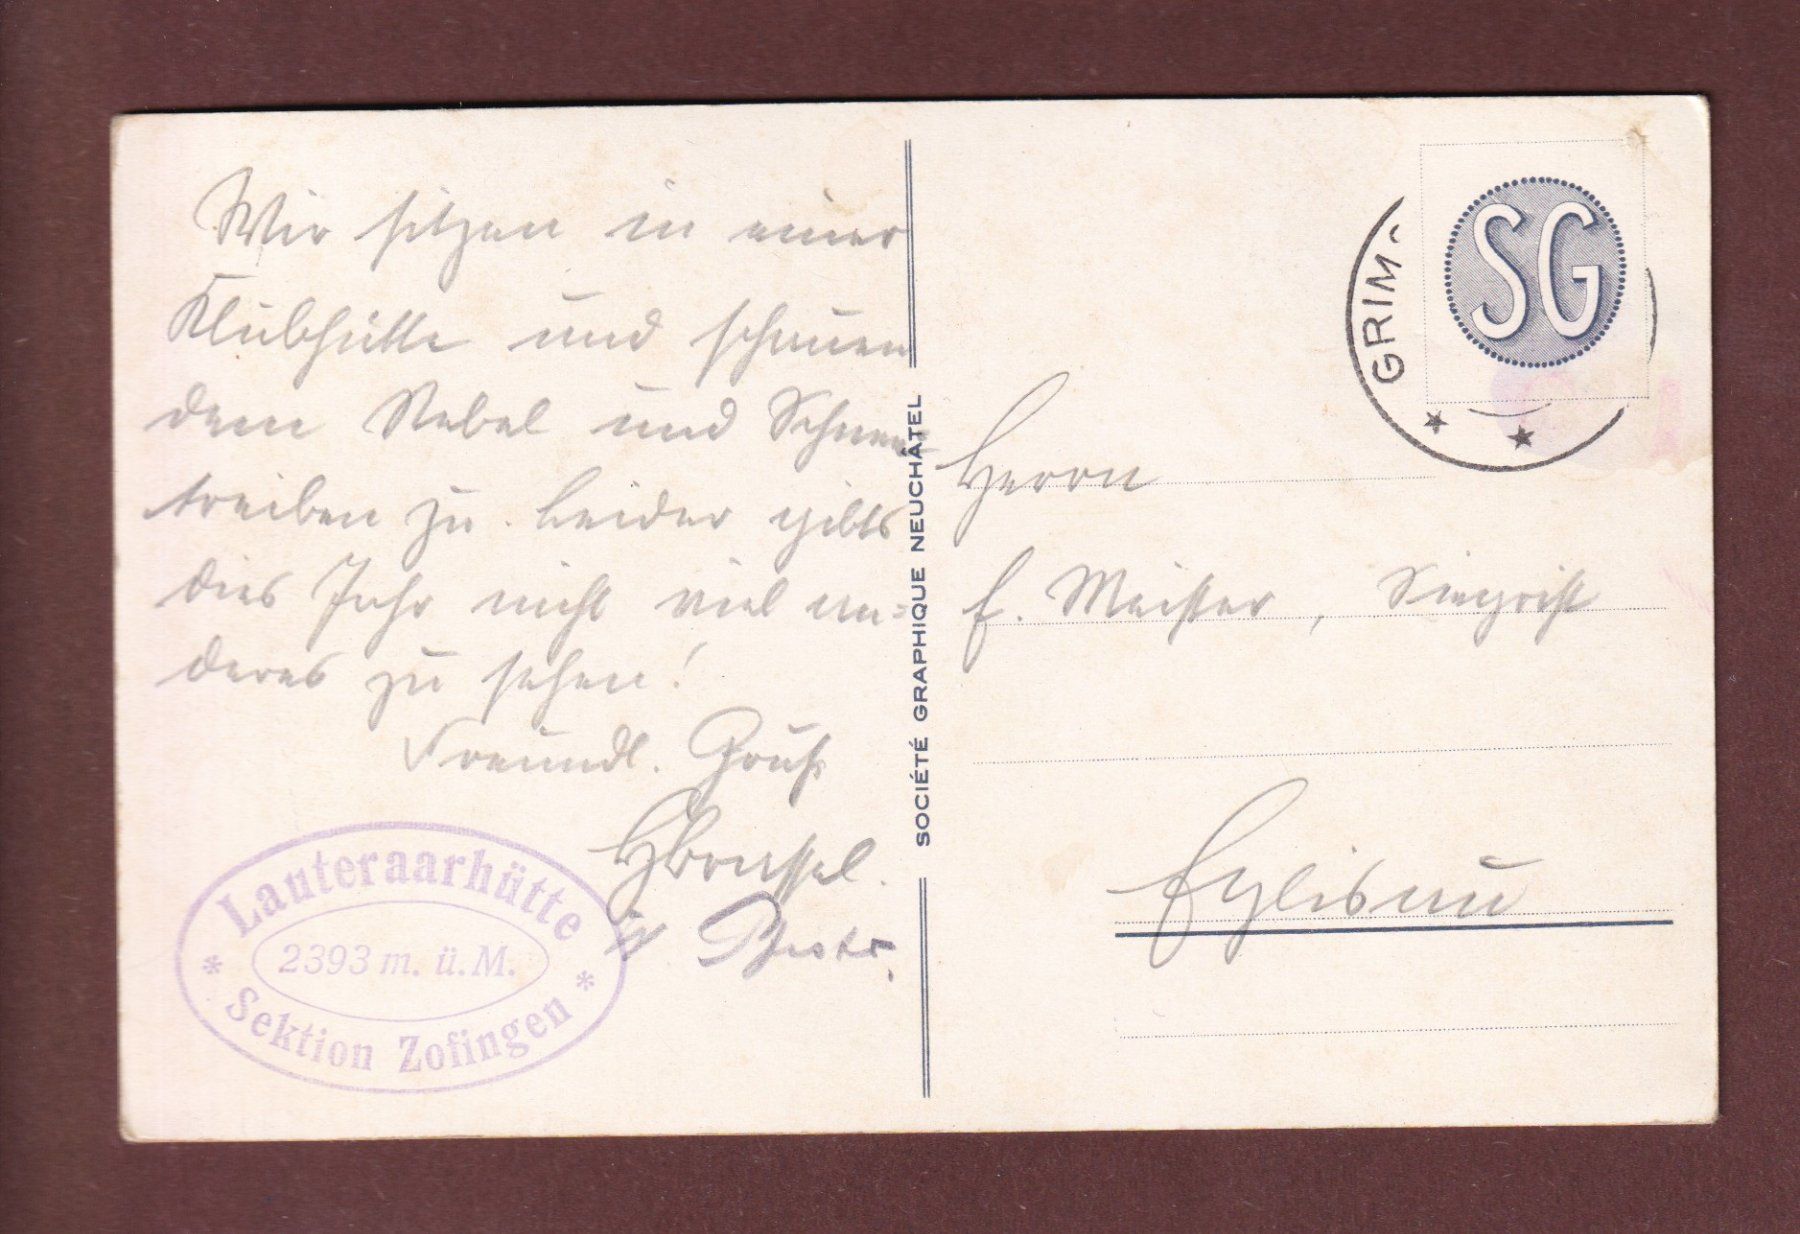 Wir sitzen in einer
Klubhütte und schauen
dem Nebel und Schnee-
treiben zu. Leider gibts
dies Jahr nicht viel an-
deres zu sehen!
Freundl. Gruß
Lauteraarhütte
2393 m. ü. M.
Sektion Zofingen
SOCIÉTÉ GRAPHIQUE NEUCHÂTEL
GRIM
SG
Herrn
E. Meister, Siegrist
Eglisau